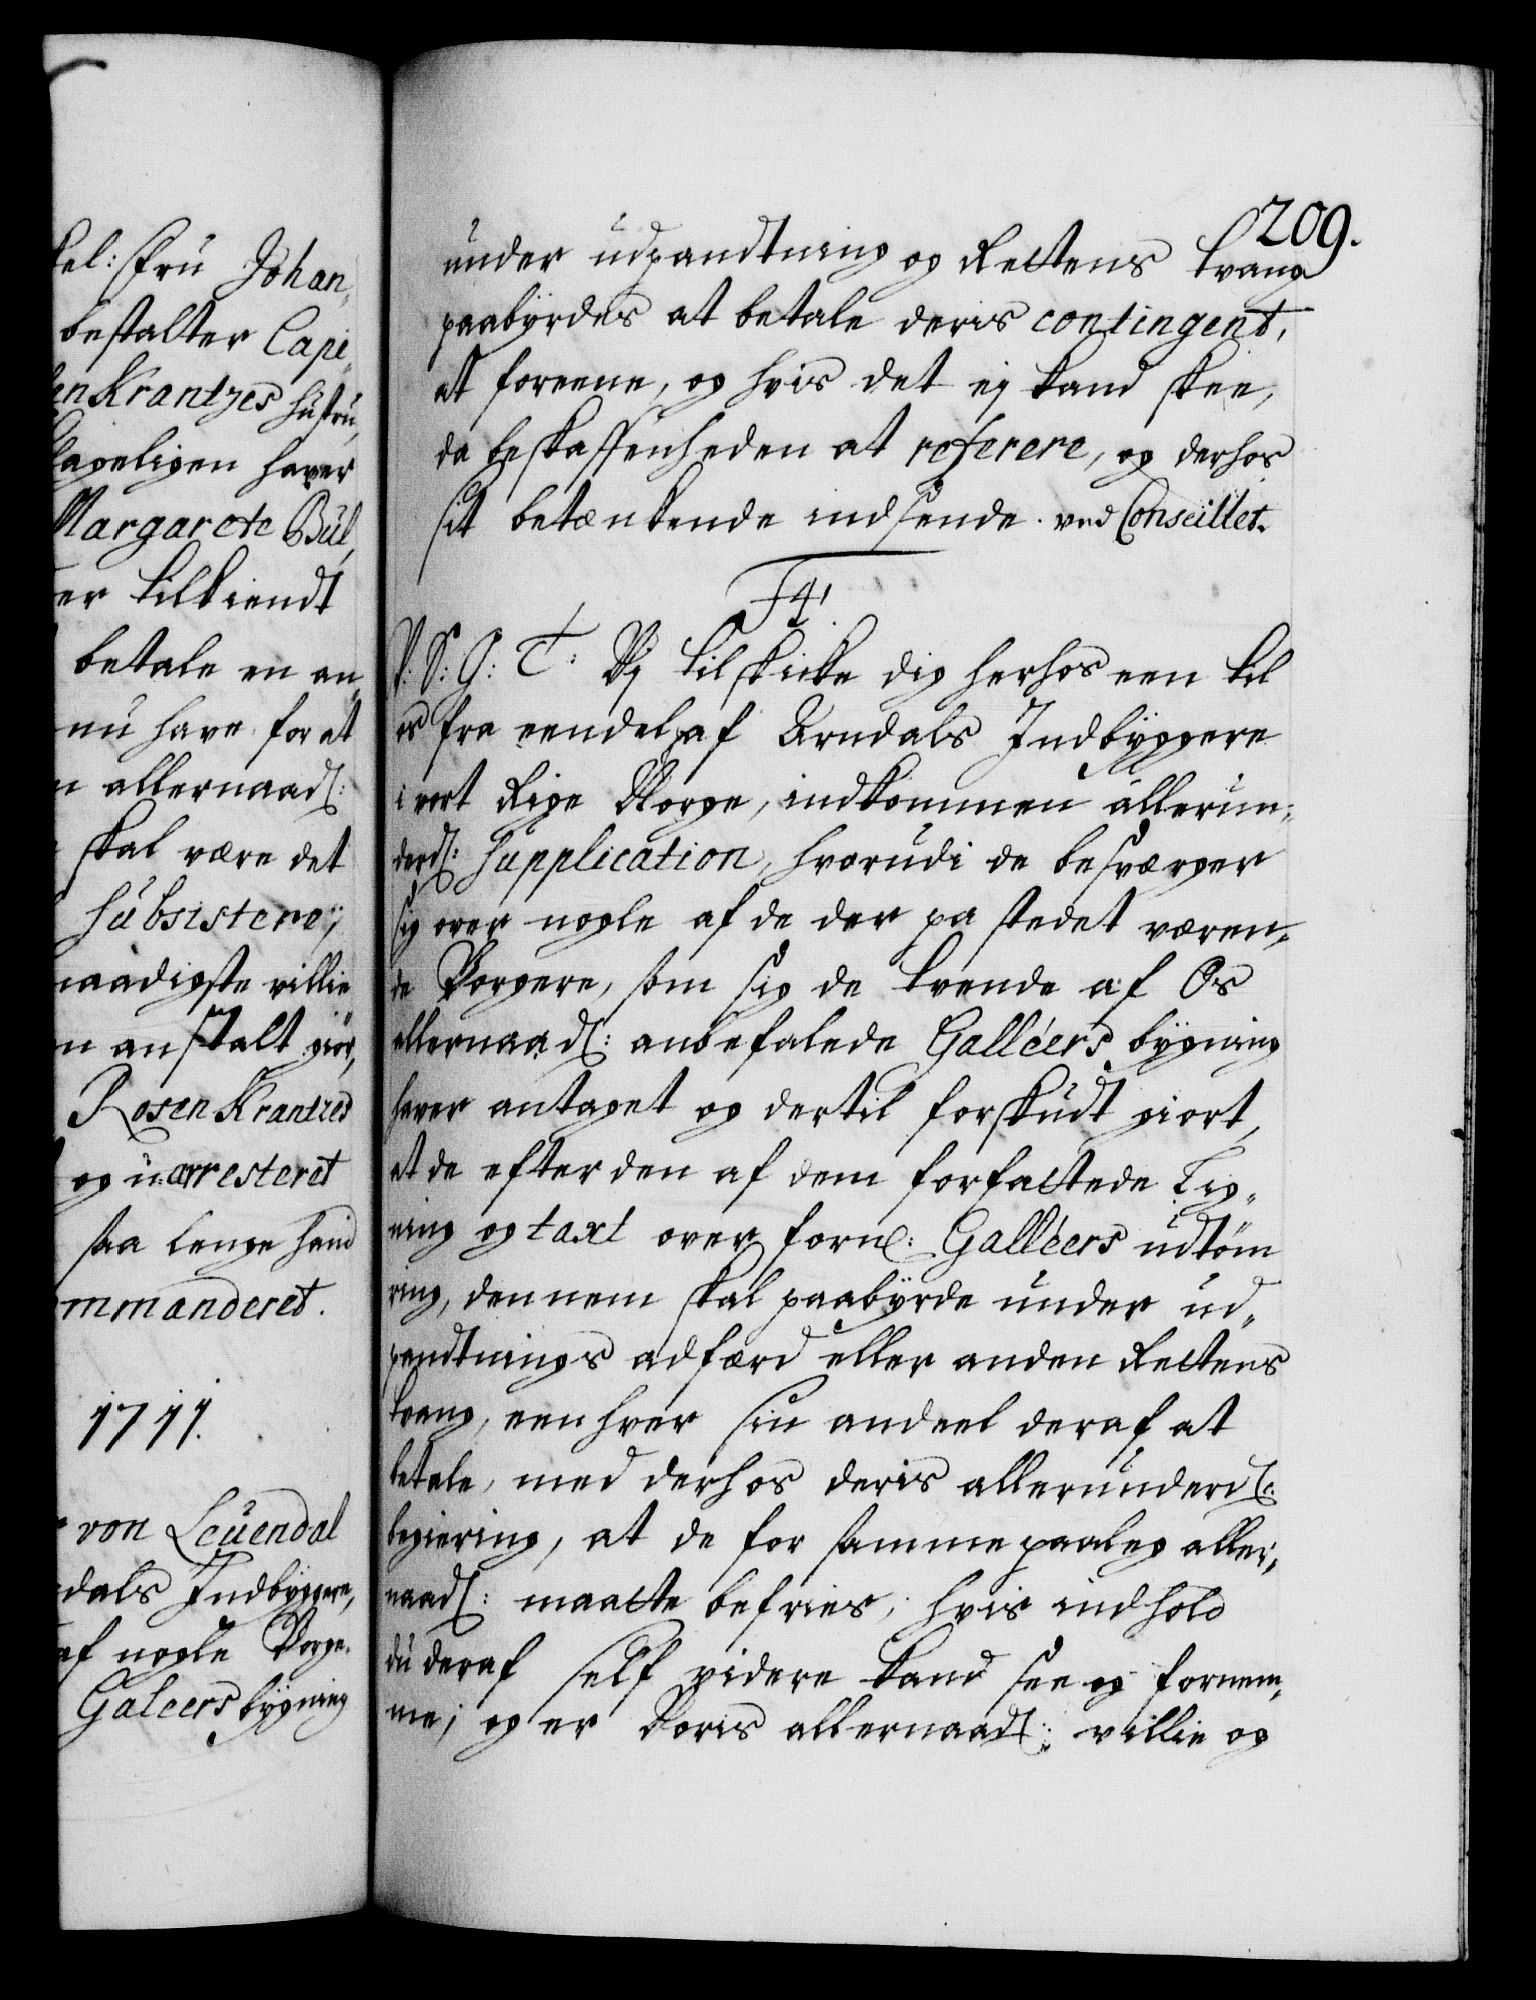 kel: Fru Johan„
bestalter Capi„
enKrantzes hustru,
klageligen haver
Margarete Bul,
er tilkiendt
betale en an„
nu have for at
n allernaad:
skal være det
subsistere;
naadigste villie
n anstalt giör,
RosenKrantzes
og u:arresteret
saa lenge hand
mmanderet.
1711.
von Leuendal
dals Indbyggere,
af nogle Borge„
Galeers bygning
209.
under udpandtning og Rettens tvang
paabyrdes at betale deris contingent,
at foreene, og hvis det ej kand skee,
da beskaffenheden at referere, og derhos
sit betænkende indsende. ved Conseillet.
F4!
V: S: G: T: Vj tilskicke dig herhos een til
os fra eendel af Arndals Indbyggere
i vort Rige Norge, indkommen allerun„
derd: Supplication, hvorudi de besværger
sig over nogle af de der paa stedet væren„
de Borgere, som sig de tvende af Os
allernaad: anbefalede Galléers bygning
haver antaget og dertil forskudt giort,
at de efter den af dem forfattede Lig„
ning og taxt over forn: Galléers udtöm
ring, dennem skal paabyrde under ud„
pandtnings adfærd eller anden Rettens
tvang, een hver sin andeel deraf at
betale, med derhos deris allerunderd:
begiering, at de for samme paaleg aller„
naad: maatte befries, hvis indhold
du deraf self videre kand see og fornem„
me; og er Voris allernaad: villie og